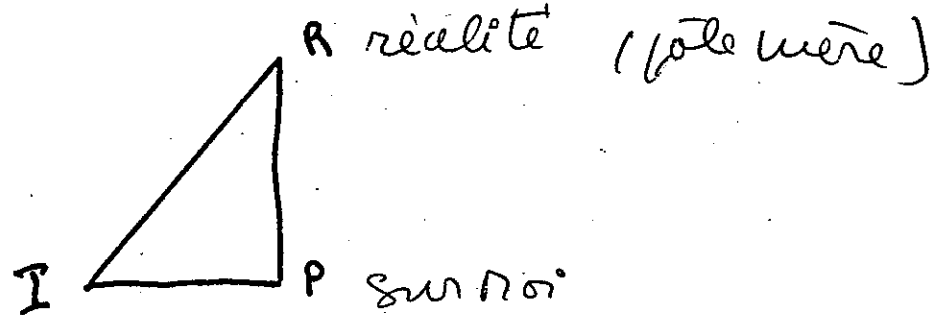 R réalité (pôle mère)
I P surmoi